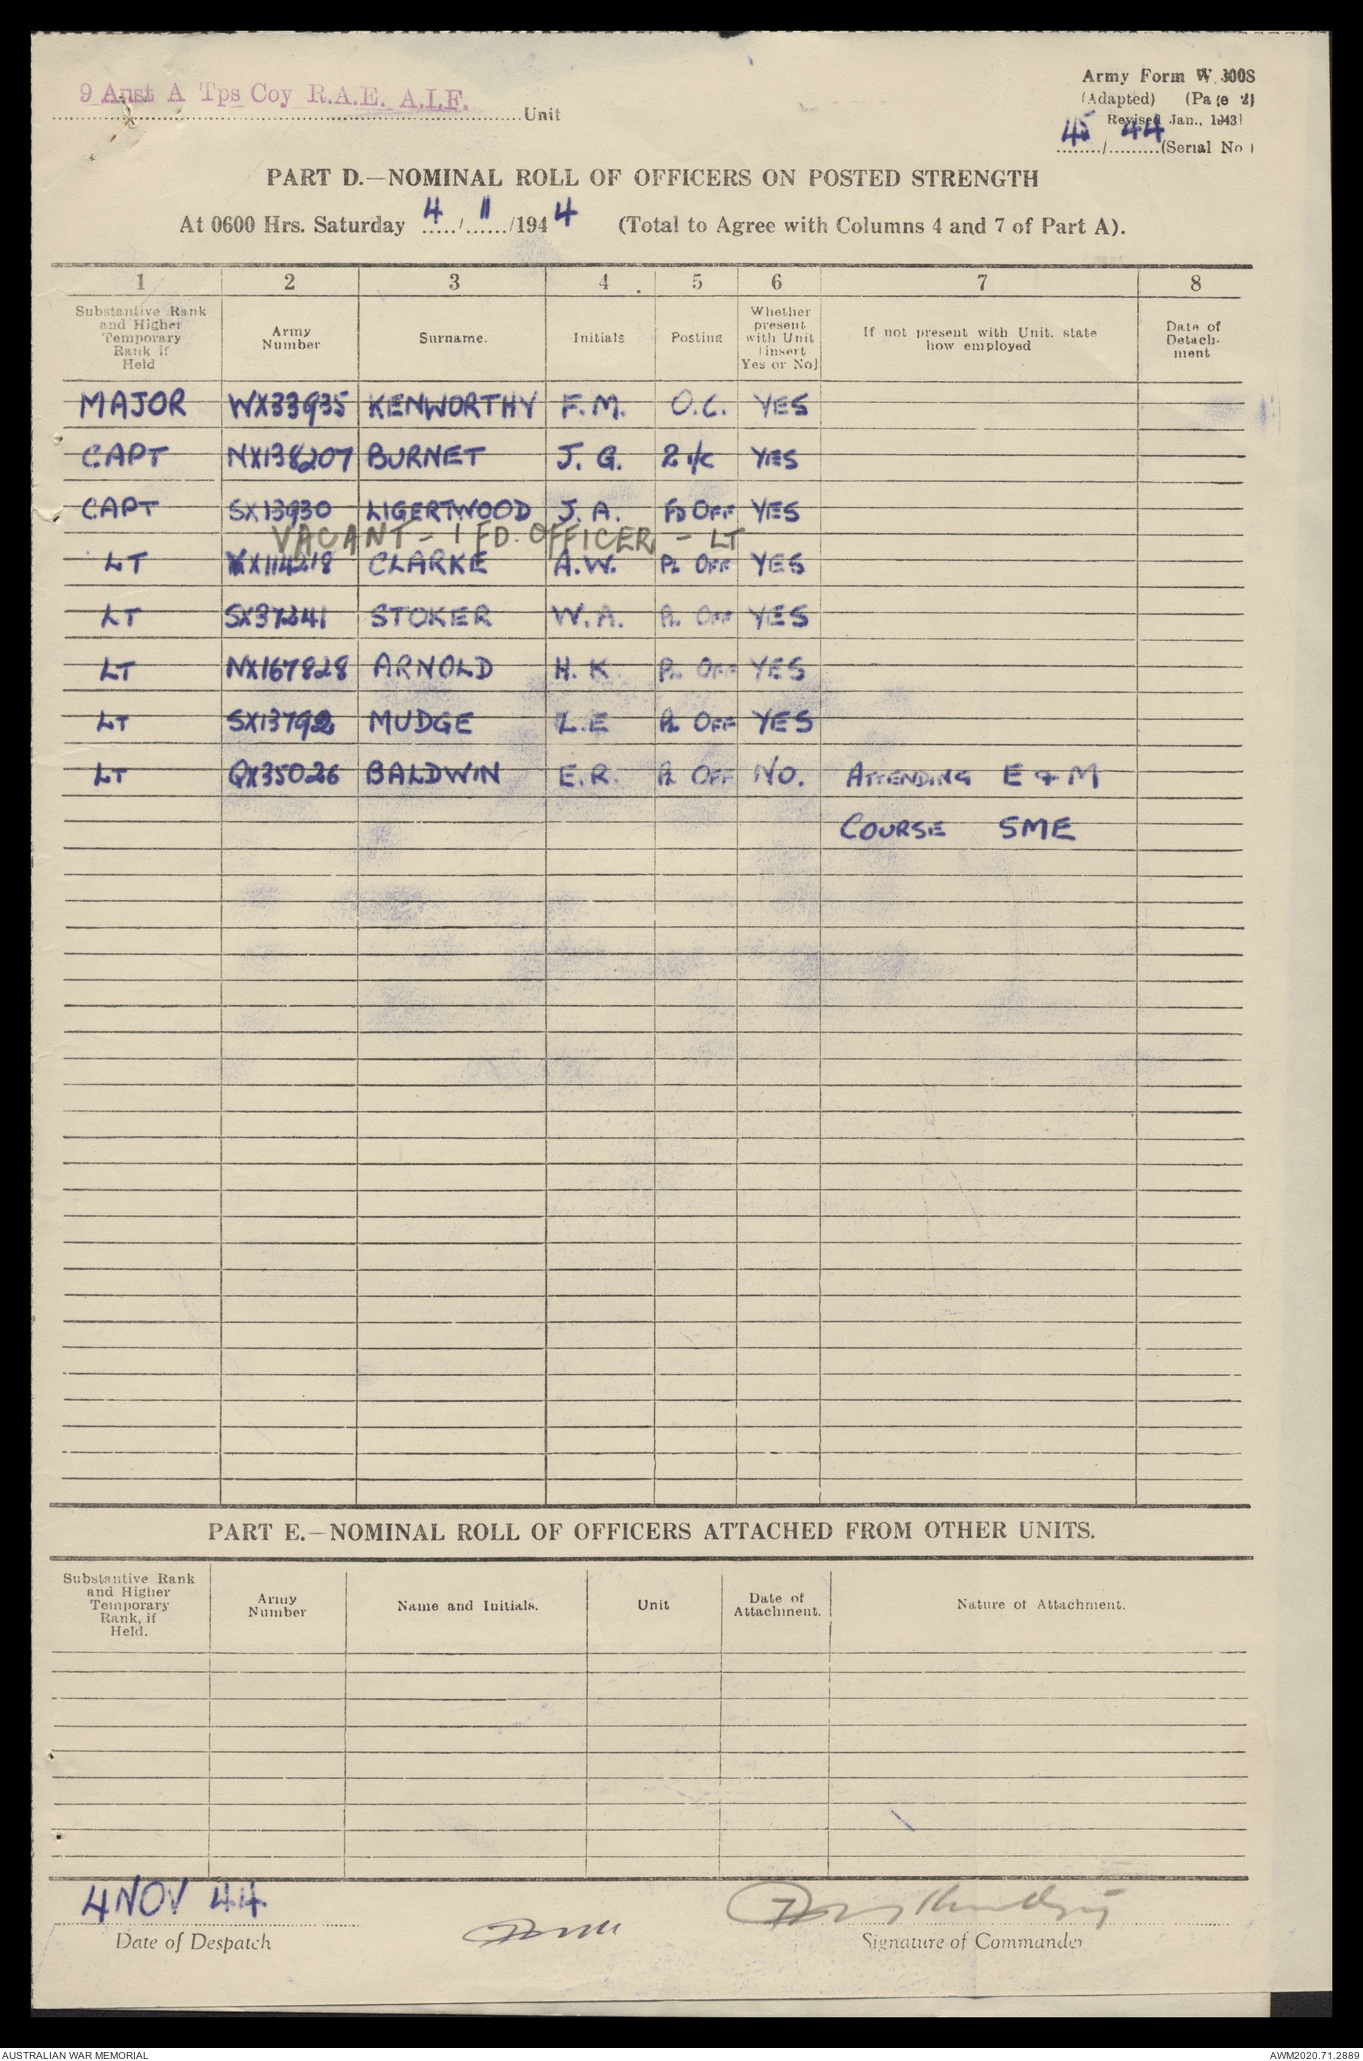 9 Aust A Tps Coy R.A.E. A.I.F. Unit
Army Form W 3008
(Adapted) (Page 2)
Revised Jan., 1943
45/44 (Serial No)
PART D.—NOMINAL ROLL OF OFFICERS ON POSTED STRENGTH
At 0600 Hrs. Saturday 4/11/1944 (Total to Agree with Columns 4 and 7 of Part A).
1 2 3 4 5 6 7 8
Substantive Rank and Higher Temporary Rank if Held
Army Number
Surname.
Initials
Posting
Whether present with Unit (insert Yes or No)
If not present with Unit. state how employed
Date of Detachment
MAJOR WX33935 KENWORTHY F.M. O.C. YES
CAPT NX138207 BURNET J. G. 2 i/c YES
CAPT SX13930 LIGERTWOOD J. A. FD OFF YES
VACANT - 1 FD. OFFICER - LT
LT CLARKE A.W. PL OFF YES
LT SX37241 STOKER W. A. PL OFF YES
LT NX167828 ARNOLD H. K. PL OFF YES
LT SX13792 MUDGE L. E PL OFF YES
LT QX35026 BALDWIN E. R. PL OFF NO. ATTENDING E & M
COURSE SME
PART E.—NOMINAL ROLL OF OFFICERS ATTACHED FROM OTHER UNITS.
Substantive Rank and Higher Temporary Rank, if Held.
Army Number
Name and Initials.
Unit
Date of Attachment.
Nature of Attachment.
4 NOV 44
Date of Despatch
Signature of Commander
AUSTRALIAN WAR MEMORIAL
AWM2020.71.2889